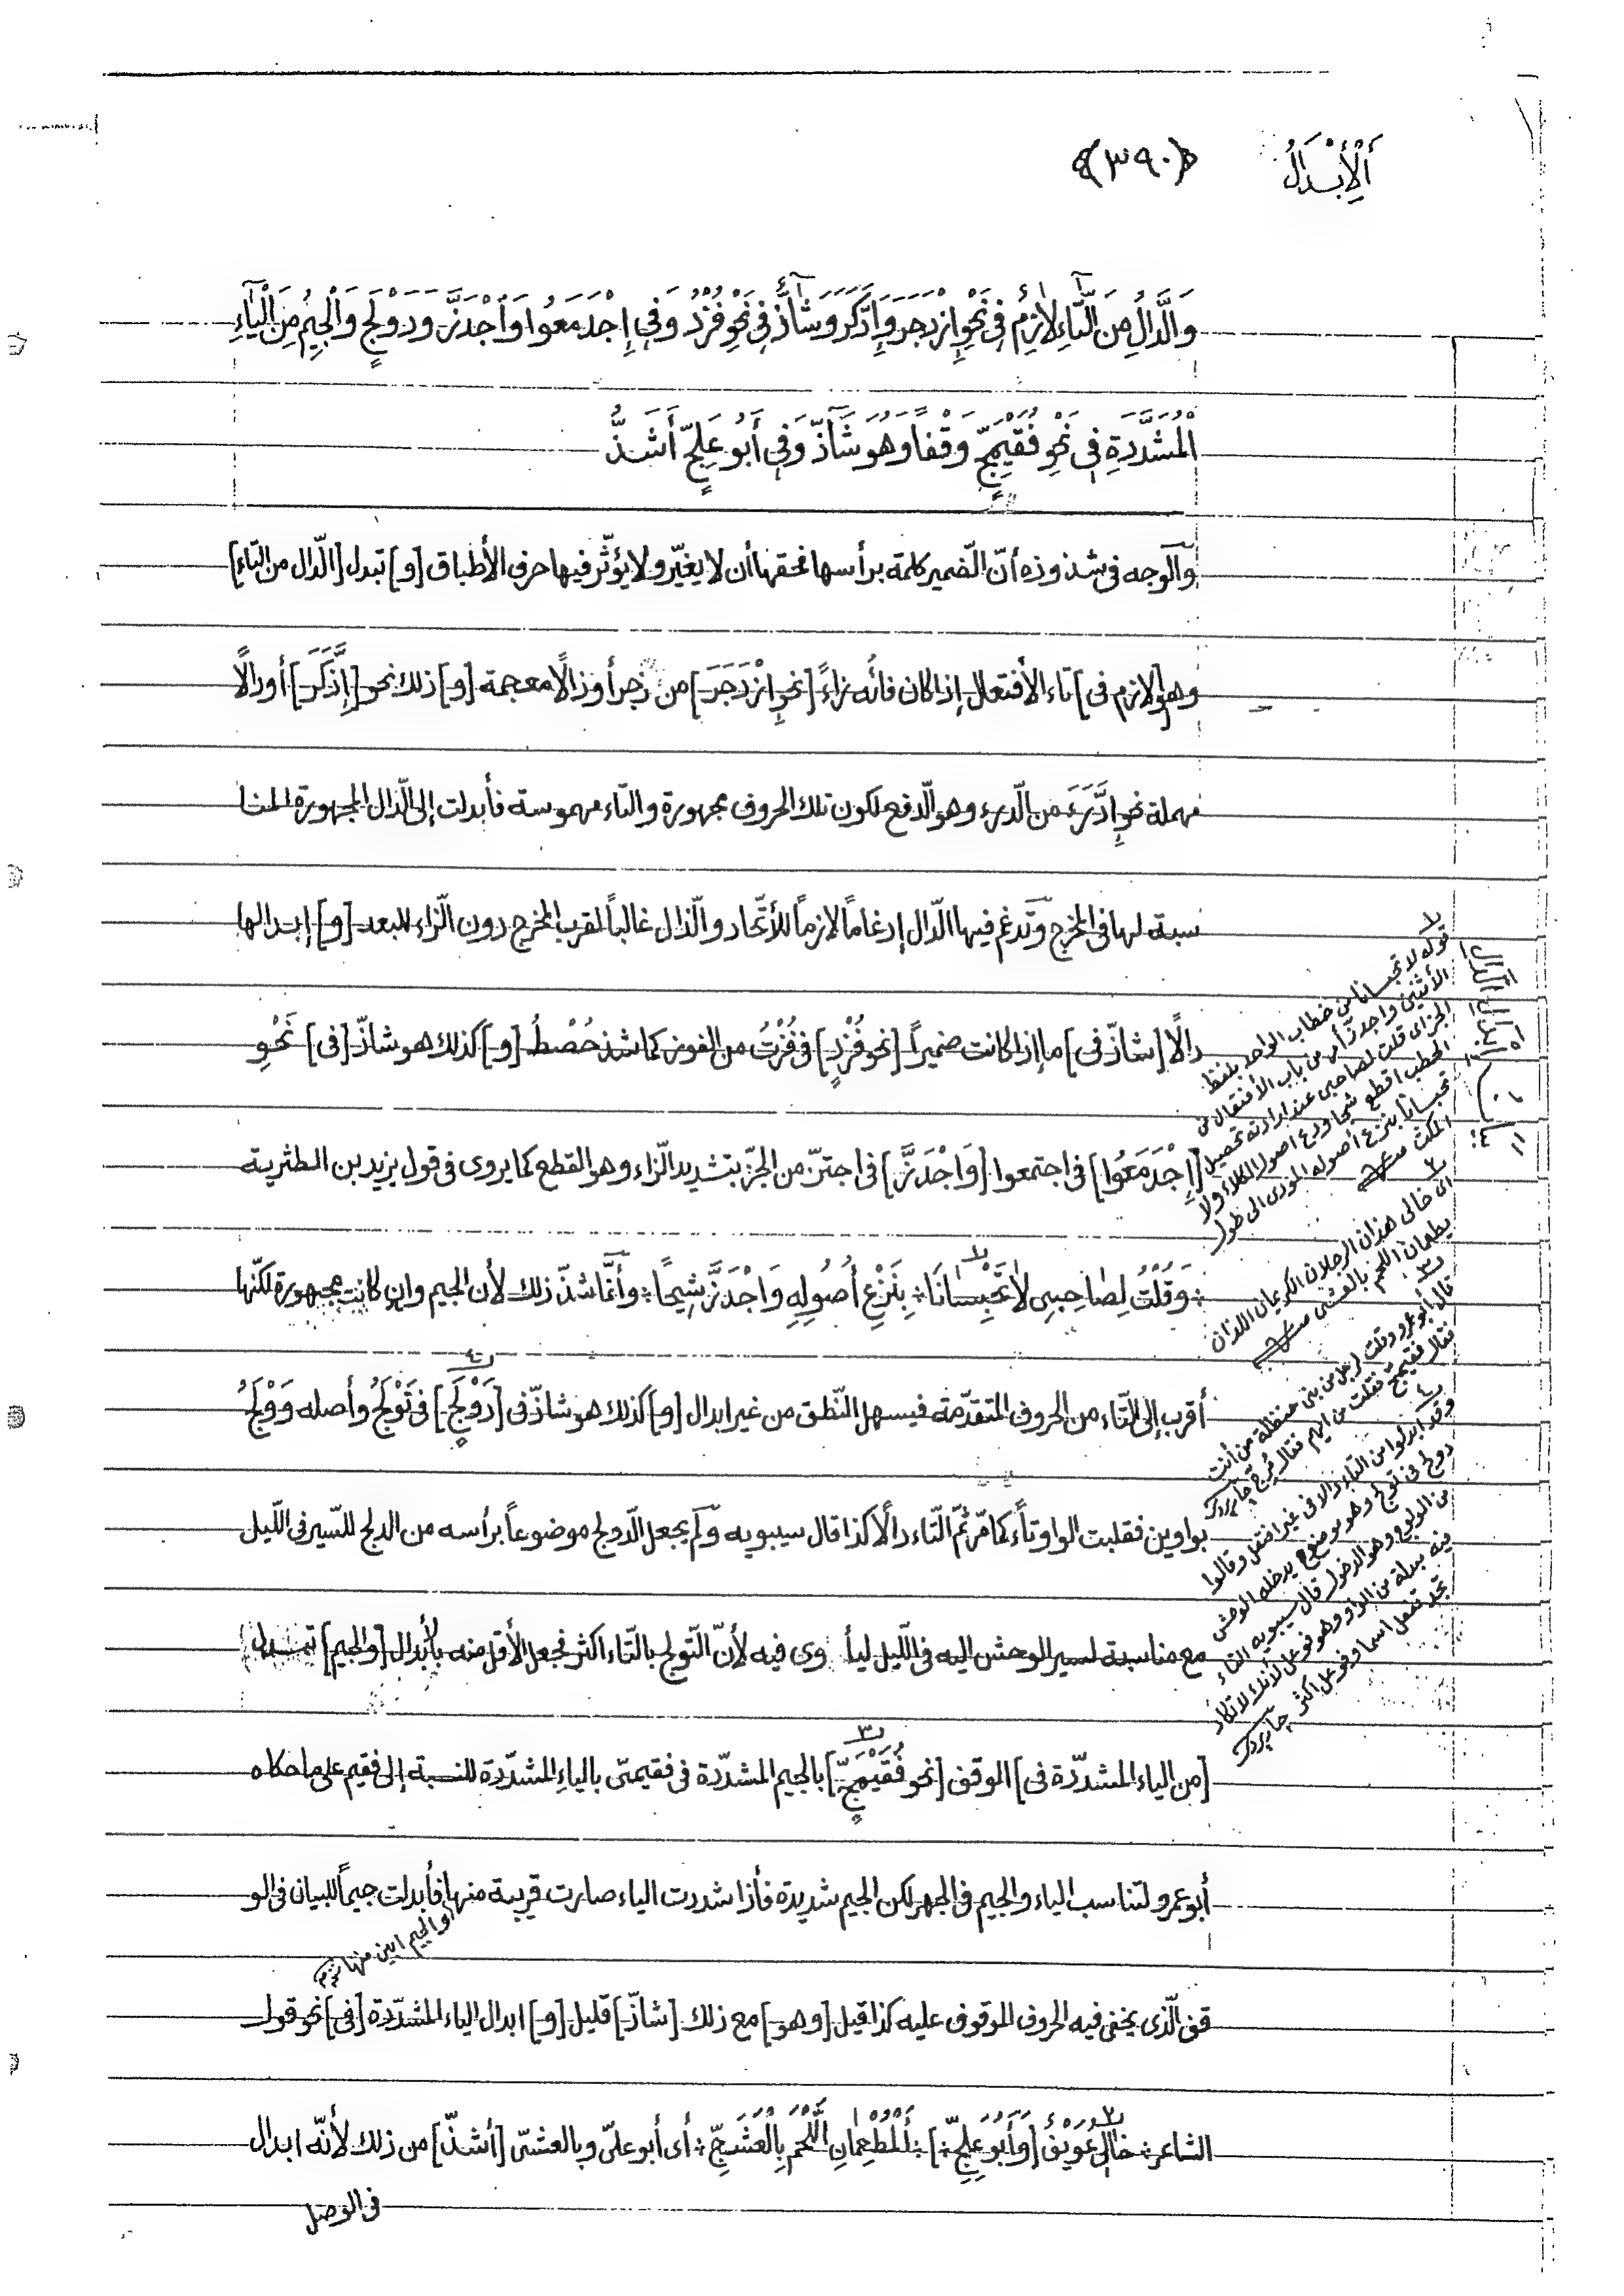 اَلْإِبْدَالُ
﴿٣٩٠﴾
وَالدَّالُ مِنَ التَّاءِ لَازِمٌ فِي نَحْوِ اِزْدَجَرَ وَاِدَّكَرَ وَشَاذٌّ فِي نَحْوِ فُزْدُ وَفِي اِجْدَمَعُوا وَاَجْدَزَّ وَدَوْلَجٍ وَالْجِيمُ مِنَ الْيَاءِ
الْمُشَدَّدَةِ فِي نَحْوِ فُقَيْمِجٍّ وَقْفًا وَهُوَ شَاذٌّ وَفِي أَبُو عَلِجٍّ أَشَذُّ
والوجه في شذوذه أنّ الضمير كلمة برأسها فحقها أن لا يغيّر ولا يؤثّر فيها حرف الأطباق [و] تبدل [الدّال من التاء]
وهو [لازم في] تاء الأفتعال إذا كان فائه زاءً [نحو اِزْدَجَرَ] من زجر أو ذالًا معجمة [و] ذلك نحو [إِذَّكَرَ] أو دالًا
مهملة نحو اِدَّرَءَ من الدّرء وهو الدّفع لكون تلك الحروف مجهورة والتاء مهموسة فأبدلت إلى الدّال المجهورة المنا
سبة لها في المخرج وتدغم فيها الدّال إدغامًا لازمًا للأتّحاد والذّال غالبًا لقرب المخرج دون الزاء للبعد [و] إبدالها
دالًا [شاذّ في] ما إذا كانت ضميرًا [نحو فُزْدٍ] في فُزْتُ من الفوز كما شذ حُصْطُ [و] كذلك هو شاذّ [في] نَحْوِ
[اِجْدَمَعُوا] في اجتمعوا [وَاجْدَزَّ] في اجتزّ من الجزّ بتشديد الزاء وهو القطع كما يروى في قول يزيد بن الطثرية
؞ وَقُلْتُ لِصَاحِبِي لَا تَحْبِسَانَا ؞ بِنَزْعِ أُصُولِهِ وَاجْدَزَّ شِيحًا ؞ وأنّما شذّ ذلك لأن الجيم وإن كانت مجهورة لكنّها
أقرب إلى التّاء من الحروف المتقدّمة فيسهل النّطق من غير ابدال [و] كذلك هو شاذّ في [دَوْلَجٍ] في تَوْلَجُ وأصله وَوْلَجُ
بواوين فقلبت الواو تاءً كما مرّ ثمّ التّاء دالًا كذا قال سيبويه ولم يجعل الدّولج موضوعاً برأسه من الدلج للسّير في اللّيل
مع مناسبة لسير الوحش اليه في اللّيل ليأوى فيه لأنّ التّولج بالتاء اكثر فجعل الأقل منه بالأبدال [والجيم] تبدل
[من الياء المشدّدة في] الوقف [نحو فُقَيْمِجٍّ] بالجيم المشدّدة في فقيمىّ بالياء المشدّدة للنسبة إلى فقيم على ما حكاه
أبو عمرو لتناسب الياء والجيم في الجهر لكن الجيم شديدة فأذا شددت الياء صارت قريبة منها فأبدلت جيماً للبيان في الو
والجيم ابين منها
قف الّذى يخفى فيه الحروف الموقوف عليه كذا قيل [وهو] مع ذلك [شاذّ] قليل [و] ابدال الياء المشدّدة [في] نحو قول
الشاعر ؞ خَالِي عُوَيْفٌ [وَأَبُو عَلِجٍّ] ؞ اَلْمُطْعِمَانِ اللَّحْمَ بِالْعَشِجِّ ؞ أى أبو علىّ وبالعشىّ [أشذّ] من ذلك لأنّه ابدال
في الوصل
ابدال الدال
قوله لا تحبسانا من خطاب الواحد بلفظ
الأثنين واجدز أمر من باب الأفتعال من
الجز اى قلت لصاحبى عند ارادته تحصيل
الحطب اقطع شيحا ودع اصول الكلاء ولا
تحبسانا بنزع أصوله المؤدى الى طول
المكث
اى خالى هذان الرجلان الكريمان اللذان
يطعمان اللحم بالعشى
قال أبو عمرو وقلت لرجل من بنى حنظلة من أنت
فقال فقيمج فقلت من ايهم فقال مرج جاربردى
وقد ابدلوا من التاء دالا في غير افتعل وقالوا
دولج في تولج وهو موضع يدخله الوحش
من الولوج وهو الدخول قال سيبويه التاء
فيه بدلة من الواو وهو فوعل لأنك لا تكاد
تجد تفعل اسما وفوعل اكثر جاربردى